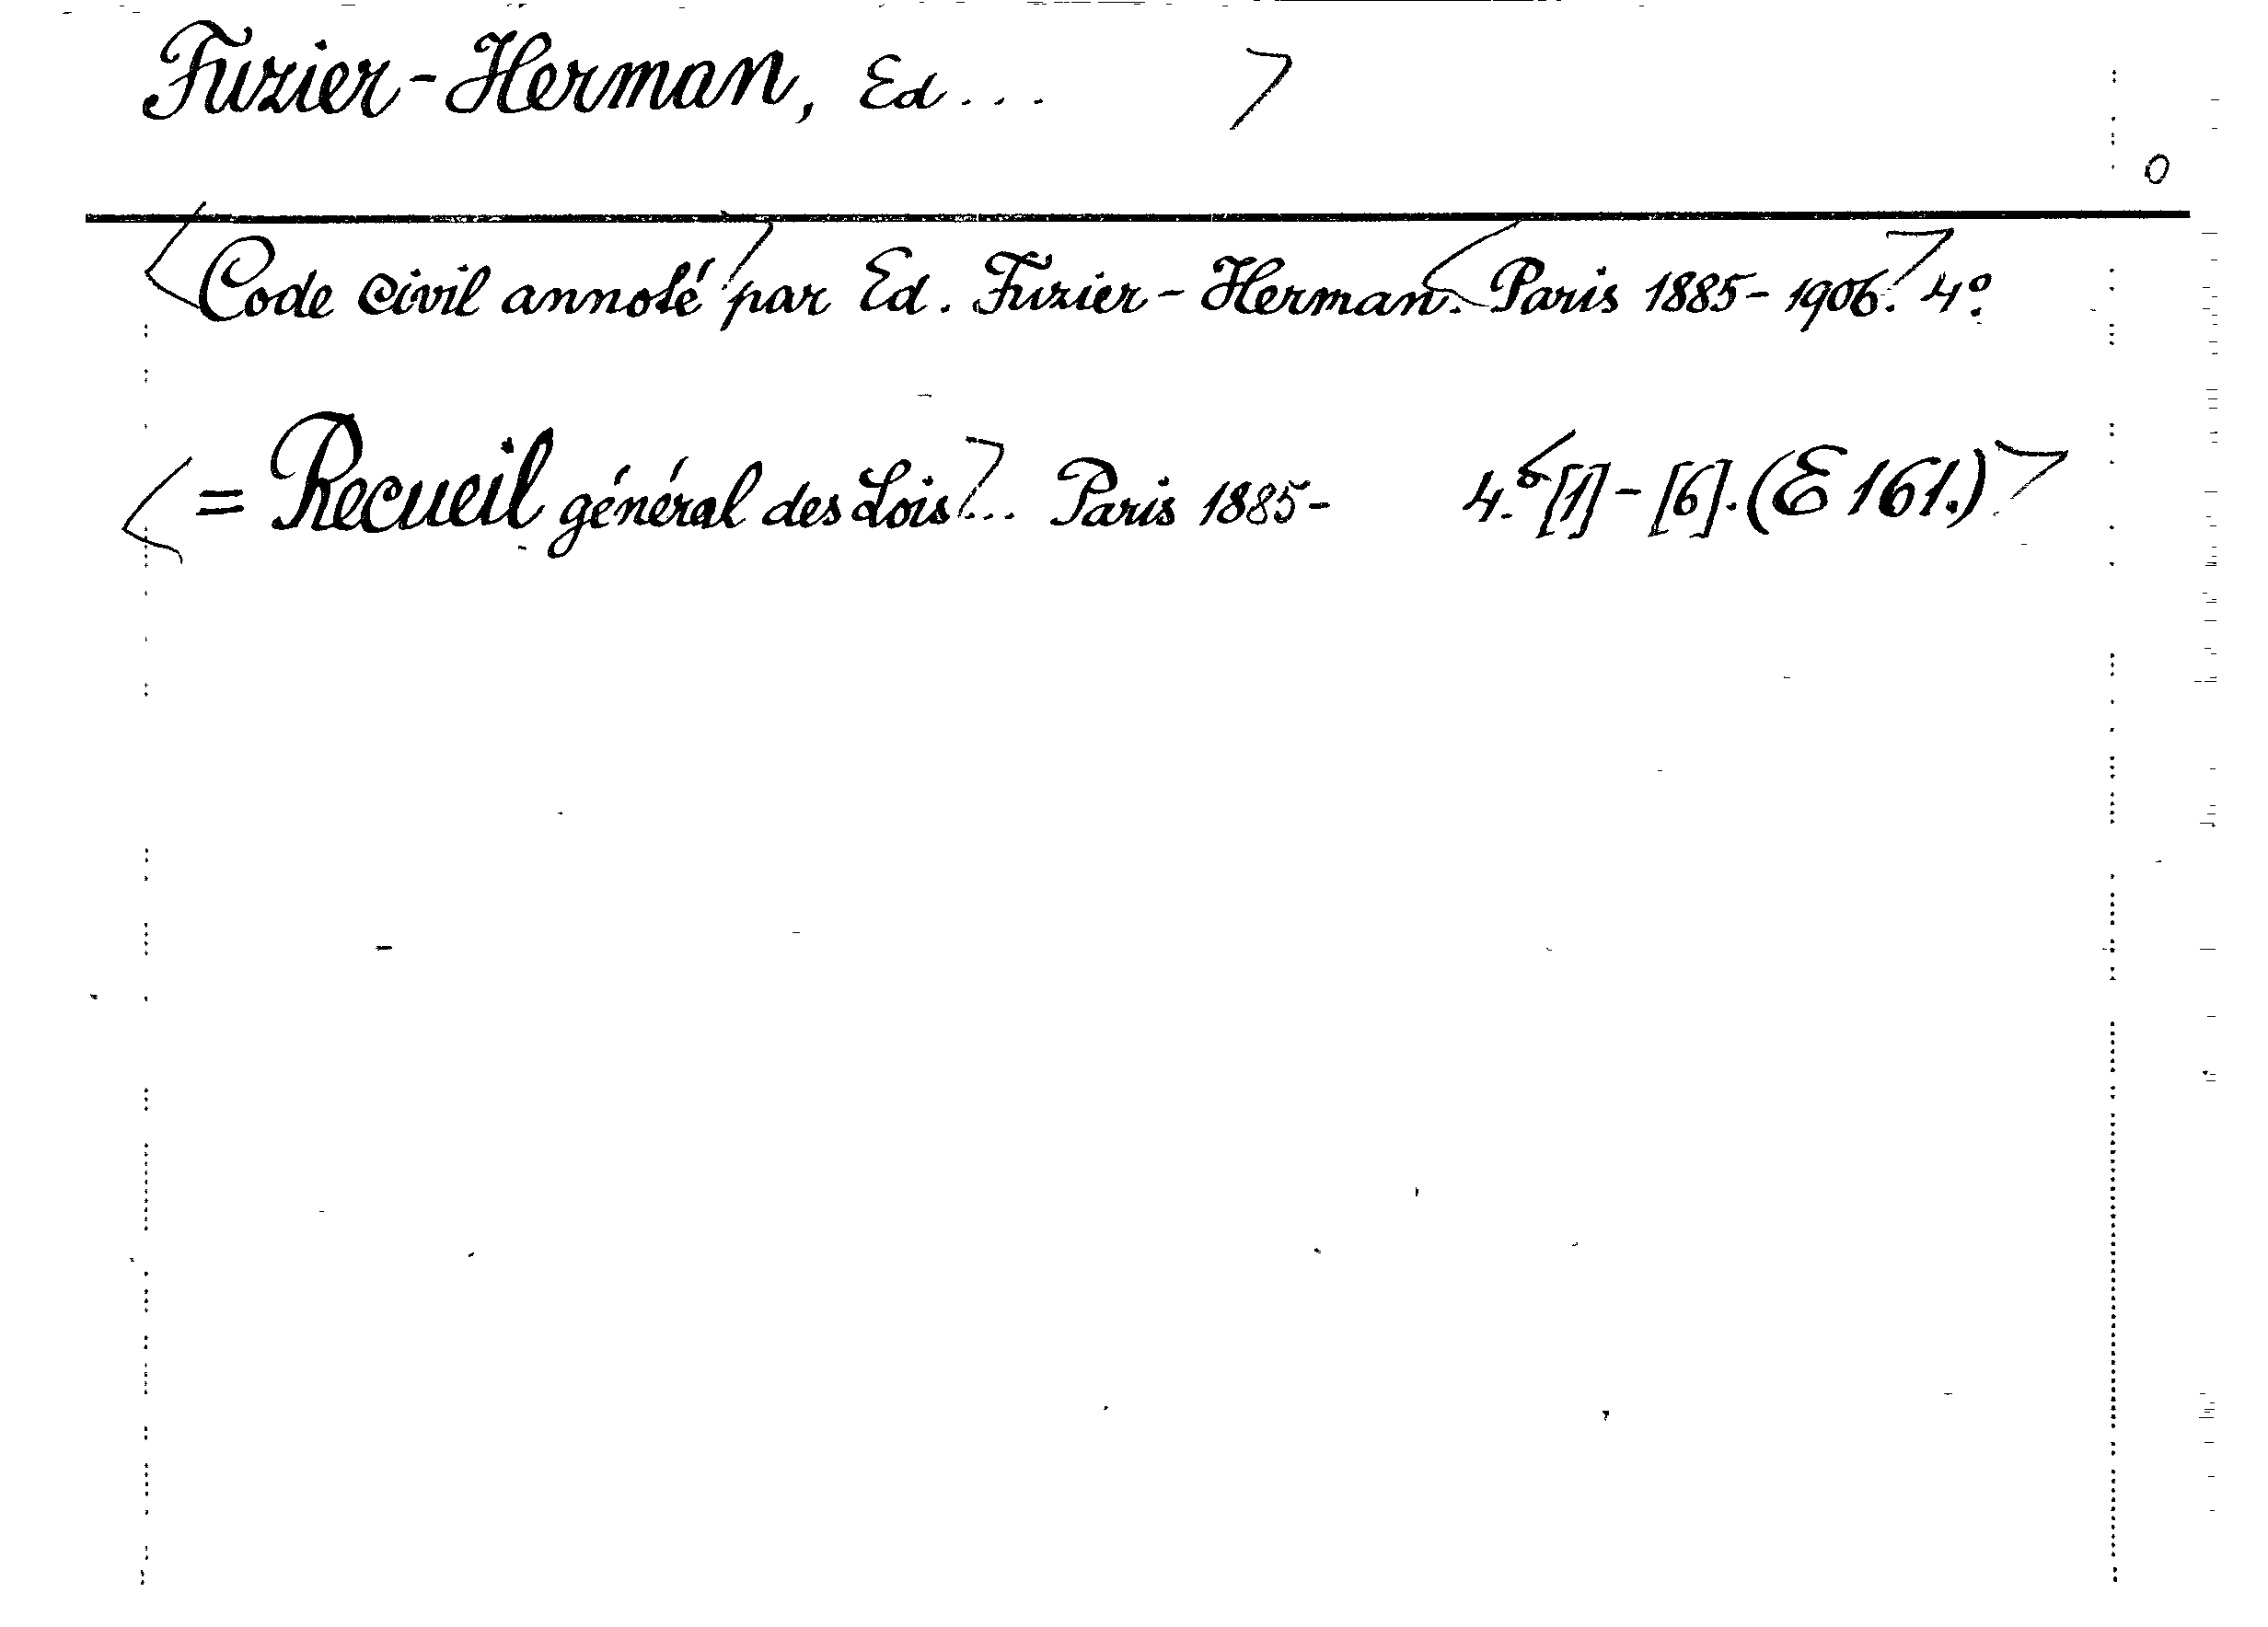 Fuzier-Herman, Ed...
Code civil annoté par Ed. Fuzier-Herman. Paris 1885-1906. 4º.
= Recueil général des Lois... Paris 1885- 4.º [1]-[6]. (E 161.)